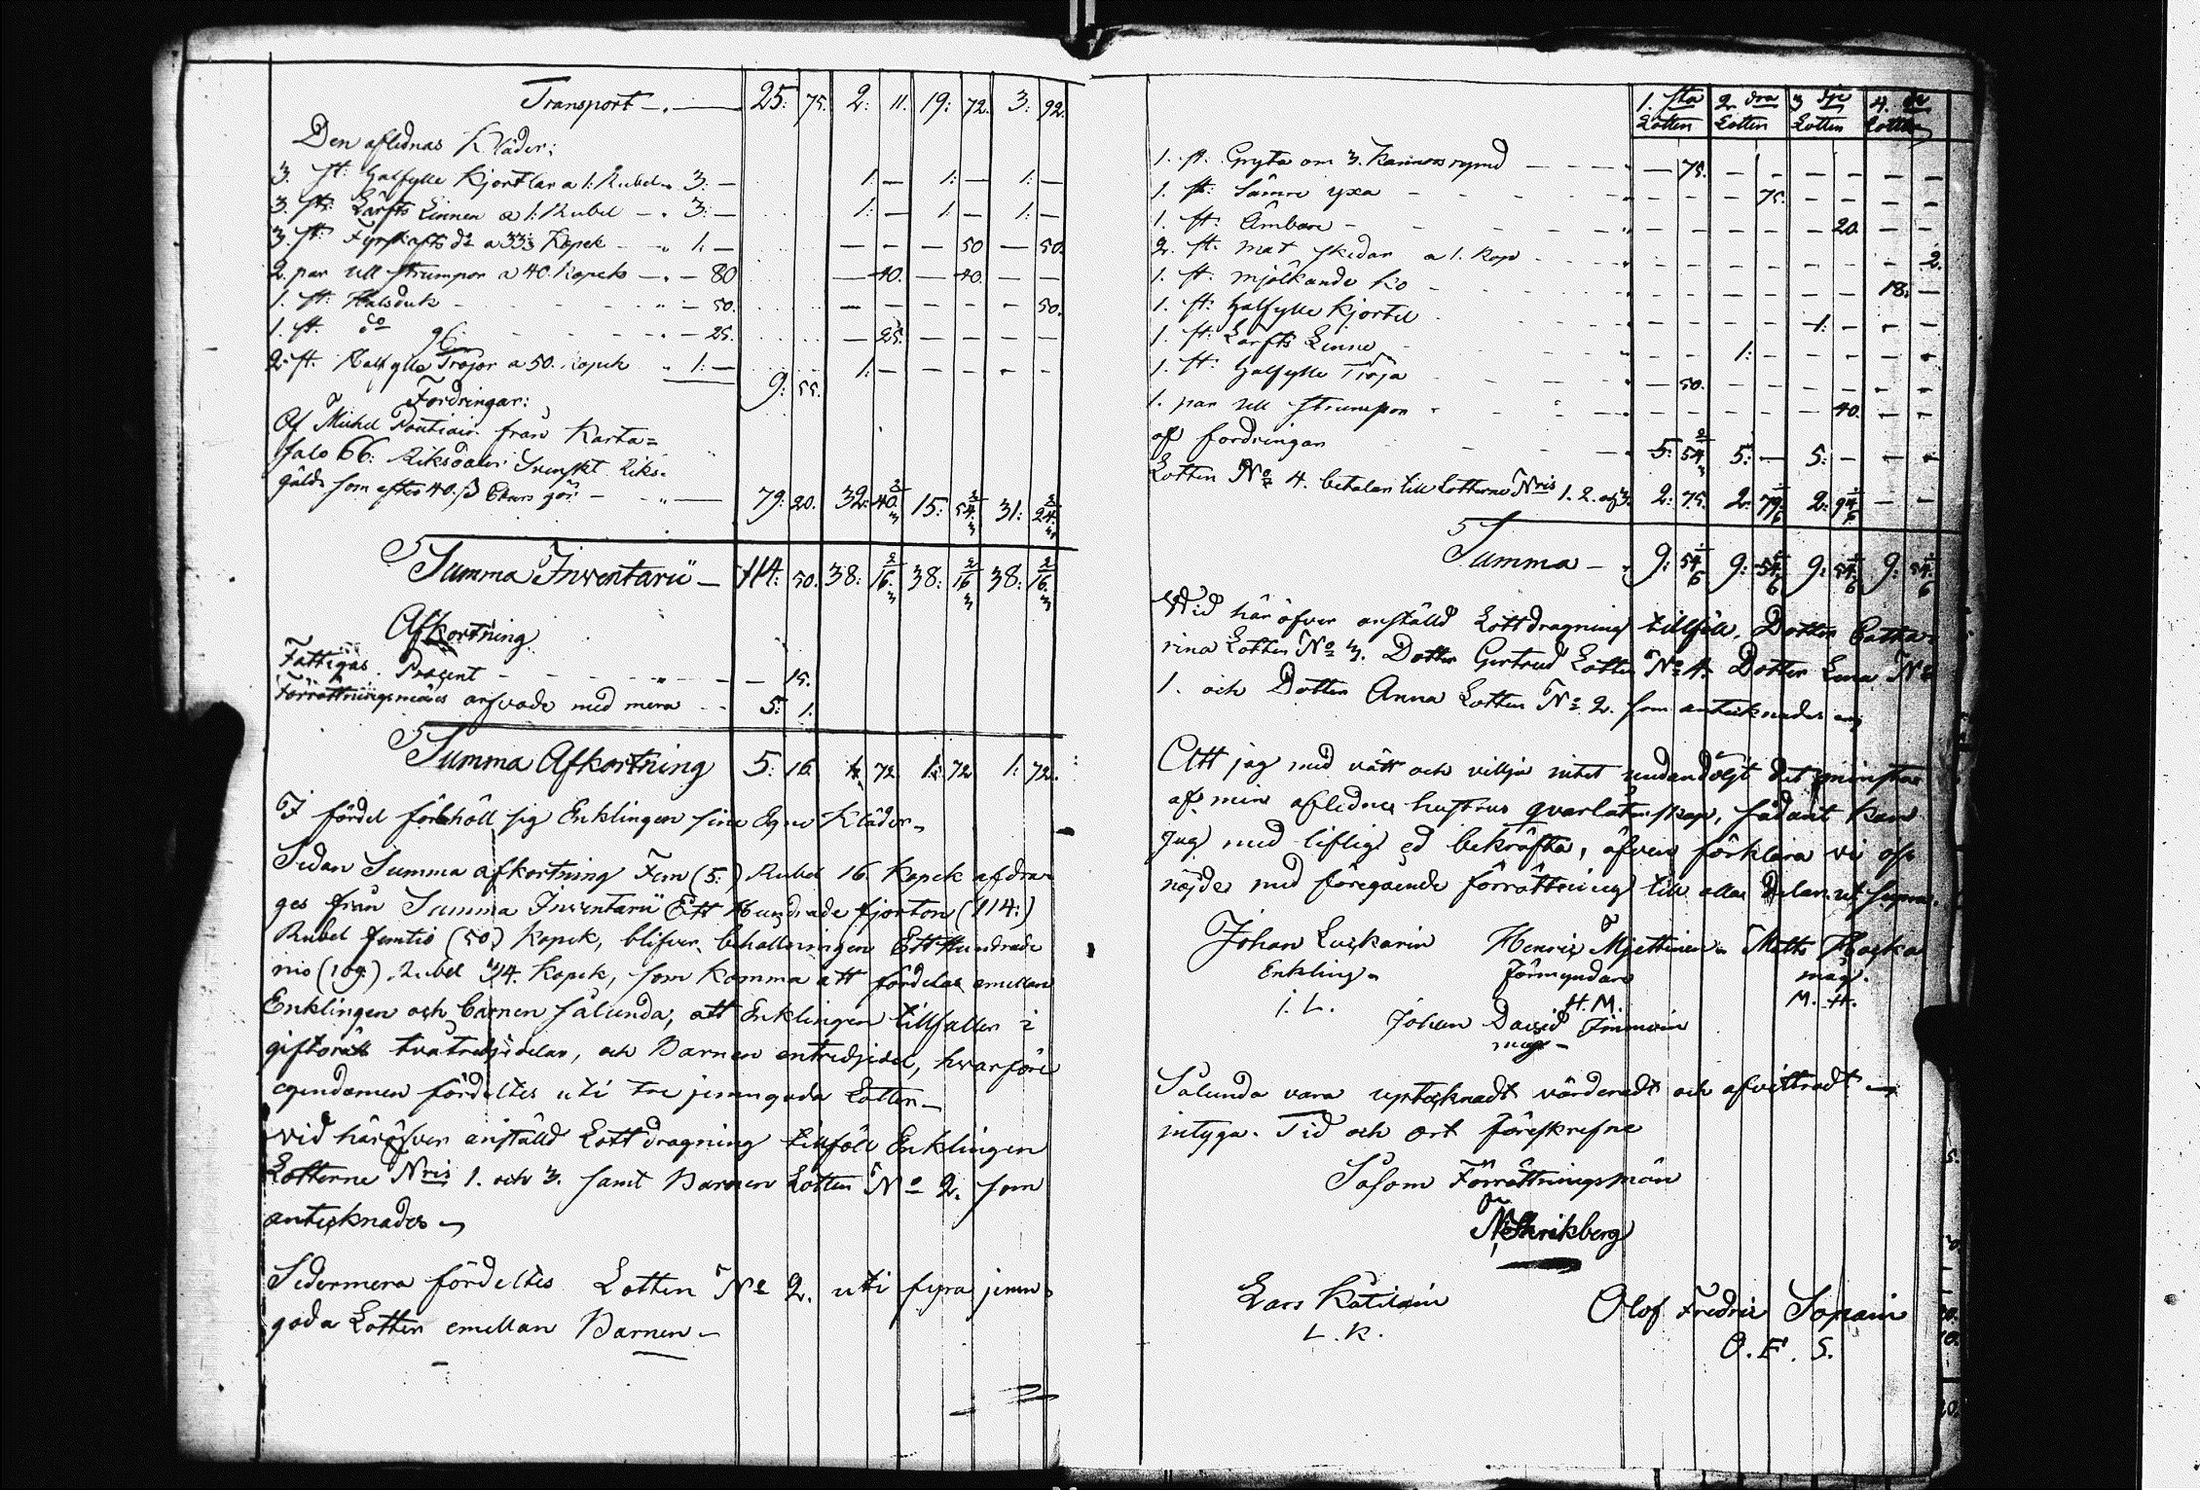 Transport 25: 75. 2: 11. 19: 72. 3: 92.
Den aflednas Kläder:
3. st: halfylle Kjortlar a 1: Rubel 3: — 1: — 1: — 1: —
3. st: Lärfts Linnen a 1: Rubel — 3: — 1: — 1: — 1: —
3. st: Fyrskafts do a 33⅓ Kopek — 1: — — — — 50 — 50.
2. par ull strumpor a 40. Kopek — — 80 — 40. — 40. — —
1. st: Halsduk — 50. — — — — — 50.
1. st. do — 25. — 25. — — — —
2. st. Halfylle Tröjor a 50. Kopek 1: — 9: 55. 1: — — — — —
Fordringar:
Af Michel från Karta=
salo 66: Riksdaler Svenskt Riks=
gälds som efter 40. ß Cours gör — 79: 20. 32: 40 2/3 15: 54 2/3 31: 24 2/3
Summa Inventarii — 114: 50. 38: 16 2/3 38: 16 2/3 38: 16 2/3
Afkortning
Fattigas Procent — 15.
Förrättningsmäns arfvode med mera 5: 1.
Summa Afkortning 5: 16. 1: 72 1: 72 1: 72.
I fördel förehöll sig Enklingen sine Egne Kläder
Sedan Summa afkortning Fem (5:) Rubel 16 Kopek afdra=
ges från Summa Inventarii Ett Hundrade fjorton (114:)
Rubel femtio (50) Kopek, blifver behållningen Ett Hundrade
nio (109.) Rubel 34. Kopek, som komma att fördelas emellan
Enklingen och Barnen sålunda, att Enklingen tillfaller i
giftorätt tvåtredjedelar, och Barnen entredjedel, hvarföre
egendomen fördeltes uti tre jemngoda Lotter
Vid häröfver anställd Lottdragning tillföll Enklingen
Lotterne Nris 1. och 3. samt Barnen Lotten No 2. som
antecknades
Sedermera fördeltes Lotten No 2. uti fyra jemn=
goda Lotter emellan Barnen
1. sta Lotten 2. dra Lotten 3 dje Lotten 4. de Lotten
1. st. Gryta om 3. Kannors rymd — 75. — — — — — —
1. st: Sämre yxa — — — 75. — — — —
1. st: Ämbare — — — — — 20. — —
2. st. mat skedar a 1. Kop — — — — — — — 2.
1. st: mjölkande Ko — — — — — — 18: —
1. st: halfylle Kjortel — — — — 1: — — —
1. st: Lärfts Linne — — 1: — — — — —
1. st: halfylle Tröja — 50. — — — — — —
1. par ull strumpor — — — — — 40. — —
af fordringar 5: 54 2/3 5: — 5: — — —
Lotten No 4. betalar till Lotterne Nris 1. 2. och 3. 2: 75. 2: 79 1/6 2: 94 1/6 — —
Summa — 9: 54 1/6 9: 54 1/6 9: 54 1/6 9: 54 1/6
Vid häröfver anställd Lottdragning tillföll, Dotter Catha=
rina Lotten No 3. Dotter Gertrud Lotten No 4. Dotter Lena No
1. och Dotter Anna Lotten No 2. som antecknades
Att jag med vett och vilja intet undandöljt det minsta
af min aflednes hustrus qvarlåtenskap, sådant kan
jag med liflig ed bekräfta, äfven förklara vi oss
nöjde med föregående förrättning till alla delar. ut supra.
Johan Luckarin Henric Miettinen Matts Hacka
Enkling Förmyndare måg.
J. L. H. M. M. H.
Johan David
måg
Sålunda vara uptecknadt värderadt och afvittradt
intyga. Tid och ort föreskrefne
Såsom Förrättningsmän
N. Skrikberg
Lars Olof Fredric Sopain
L. K. O. F. S.